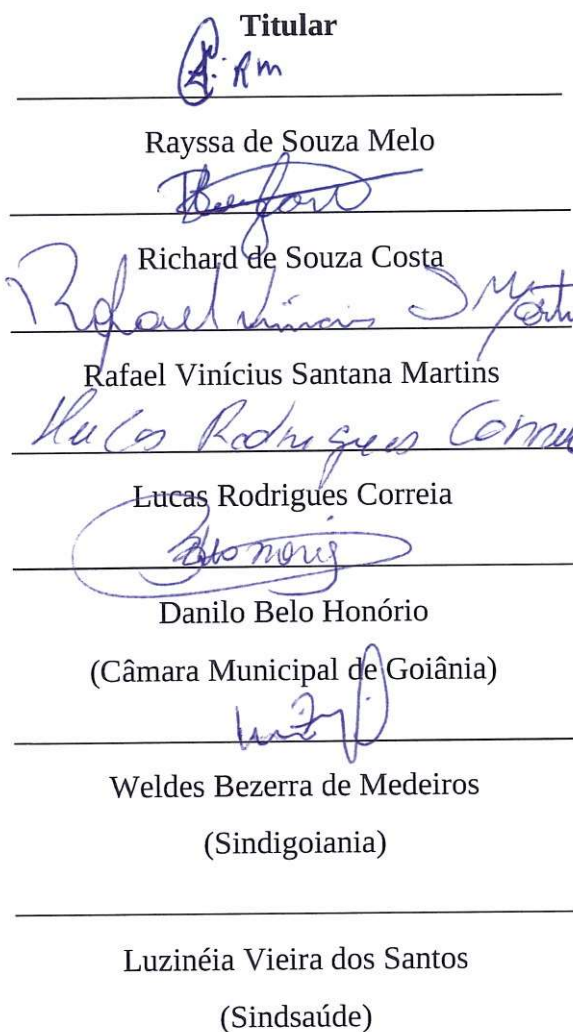 Titular
RM
Rayssa de Souza Melo
Richard de Souza Costa
Rafael Vinicius S Martin
Rafael Vinícius Santana Martins
Lucas Rodrigues Correia
Lucas Rodrigues Correia
Danilo Belo Honório
(Câmara Municipal de Goiânia)
Weldes Bezerra de Medeiros
(Sindigoiania)
Luzinéia Vieira dos Santos
(Sindsaúde)